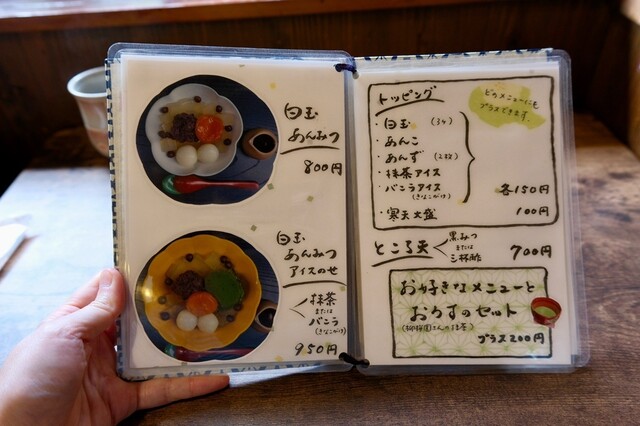 白玉
あんみつ
800円
白玉
あんみつ
アイスのせ
抹茶
または
バニラ
(きなこがけ)
950円
トッピング
どのメニューにも
プラスできます。
・白玉 (3ヶ)
・あんこ
・あんず (2枚)
・抹茶アイス
・バニラアイス
(きなこがけ)
各150円
・寒天大盛 100円
ところ天
黒みつ
または
三杯酢
700円
お好きなメニューと
おうすのセット
プラス200円